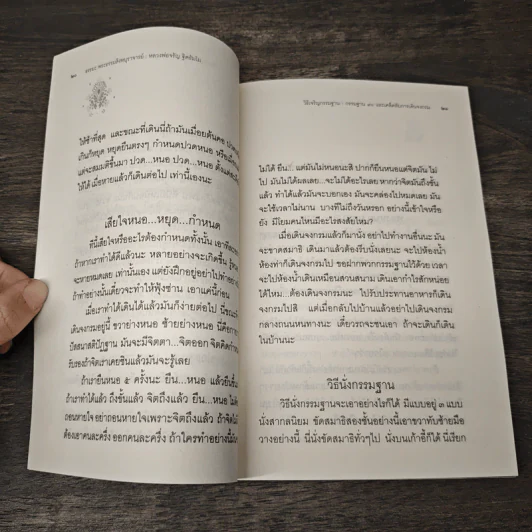 ๒๐
ธรรมะ พระธรรมสิงหบุราจารย์ : หลวงพ่อจรัญ ฐิตธัมโม
ให้ช้าที่สุด และขณะที่เดินนี่ถ้ามันเมื่อยต้นคอ ปวด
เกินก็หยุด หยุดยืนตรงๆ กำหนดปวดหนอ หรือเมื่อ
แต่จะสมมติขึ้นมา ปวด...หนอ ปวด...หนอ ตั้งแต่
ให้ได้ เมื่อหายแล้วก็เดินต่อไป เท่านี้เองนะ
เสียใจหนอ...หยุด...กำหนด
ที่นี้เสียใจหรืออะไรต้องกำหนดทั้งนั้น เอาที
ถ้าหากเราทำได้ดีแล้วนะ หลายอย่างจะเกิดขึ้น รู้
จะหายหมดเลย เท่านั้นเอง แต่ยังฝึกอยู่อย่าไปทำอย่าง
ถ้าทำอย่างนั้นเดี๋ยวจะทำให้ฟุ้งซ่าน เอาแค่นี้ก่อน
เมื่อเราทำได้เดินได้แล้วมันก็ง่ายต่อไป นี่ระ
เดินจงกรมอยู่นี้ ขวาย่างหนอ ซ้ายย่างหนอ นี่คือกา
ปัสสนาสติปัฏฐาน มันจะมีจิตตา...จิตออก จิตคิดกำ
รับรองถ้าจิตเราเคยชินแล้วมันจะรู้เลย
ถ้าเรายืนหนอ ๕ ครั้งนะ ยืน...หนอ แล้วยืนขึ้น
ถ้าเราทำได้แล้ว ถึงขั้นแล้ว จิตถึงแล้ว ยืน...หนอ ไม่
ถอนหายใจ อย่าถอนหายใจเพราะจิตถึงแล้ว ถ้าจิตไม่
ต้องเอาคนละครึ่ง ออกคนละครึ่ง ถ้าใครทำอย่างนี้
วิธีเจริญกรรมฐาน : กรรมฐาน
๒๑
ไม่ได้ ยืน แต่มันไม่หนอนะสิ ปากก็ยืนหนอแต่จิตมัน ไม่
ไป มันไม่ได้ผลเลย...จะไม่ได้อะไรเลย หากว่าจิตมันถึงขั้น
แล้ว ทำได้แล้วมันจะบอกเอง มันจะคล่องไปหมดเลย มัน
จะใช้เวลาไม่นาน บางทีไม่ถึงวันหรอก อย่างนี้เข้าใจหรือ
ยัง มีโยมคนไหนมีอะไรสงสัยไหม?
เมื่อเดินจงกรมแล้วก็มานั่ง อย่าไปทำงานอื่นนะ มัน
จะขาดสมาธิ เดินมาแล้วต้องรีบนั่งเลยนะ จะไปห้องน้ำ
ห้องท่าก็เดินจงกรมไป ขอฝากพวกกรรมฐานไว้ด้วย เวลา
จะไปห้องน้ำเดินเหมือนสวนสนาม เดินเอากำไรสักหน่อย
ได้ไหม...ต้องเดินจงกรมนะ ไปรับประทานอาหารก็เดิน
จงกรมไปสิ แต่เมื่อกลับไปบ้านแล้วอย่าไปเดินจงกรม
กลางถนนหนทางนะ เดี๋ยวรถจะชนเอา ถ้าจะเดินก็เดิน
ในบ้านนะ
วิธีนั่งกรรมฐาน
วิธีนั่งกรรมฐานจะเอาอย่างไรก็ได้ มีแบบอยู่ ๓ แบบ
นั่งสากลนิยม ขัดสมาธิสองชั้นอย่างนี้เอาขวาทับซ้ายมือ
วางอย่างนี้ นี่นั่งขัดสมาธิทั่วๆไป นั่งบนเก้าอี้ก็ได้ นี่เรียก